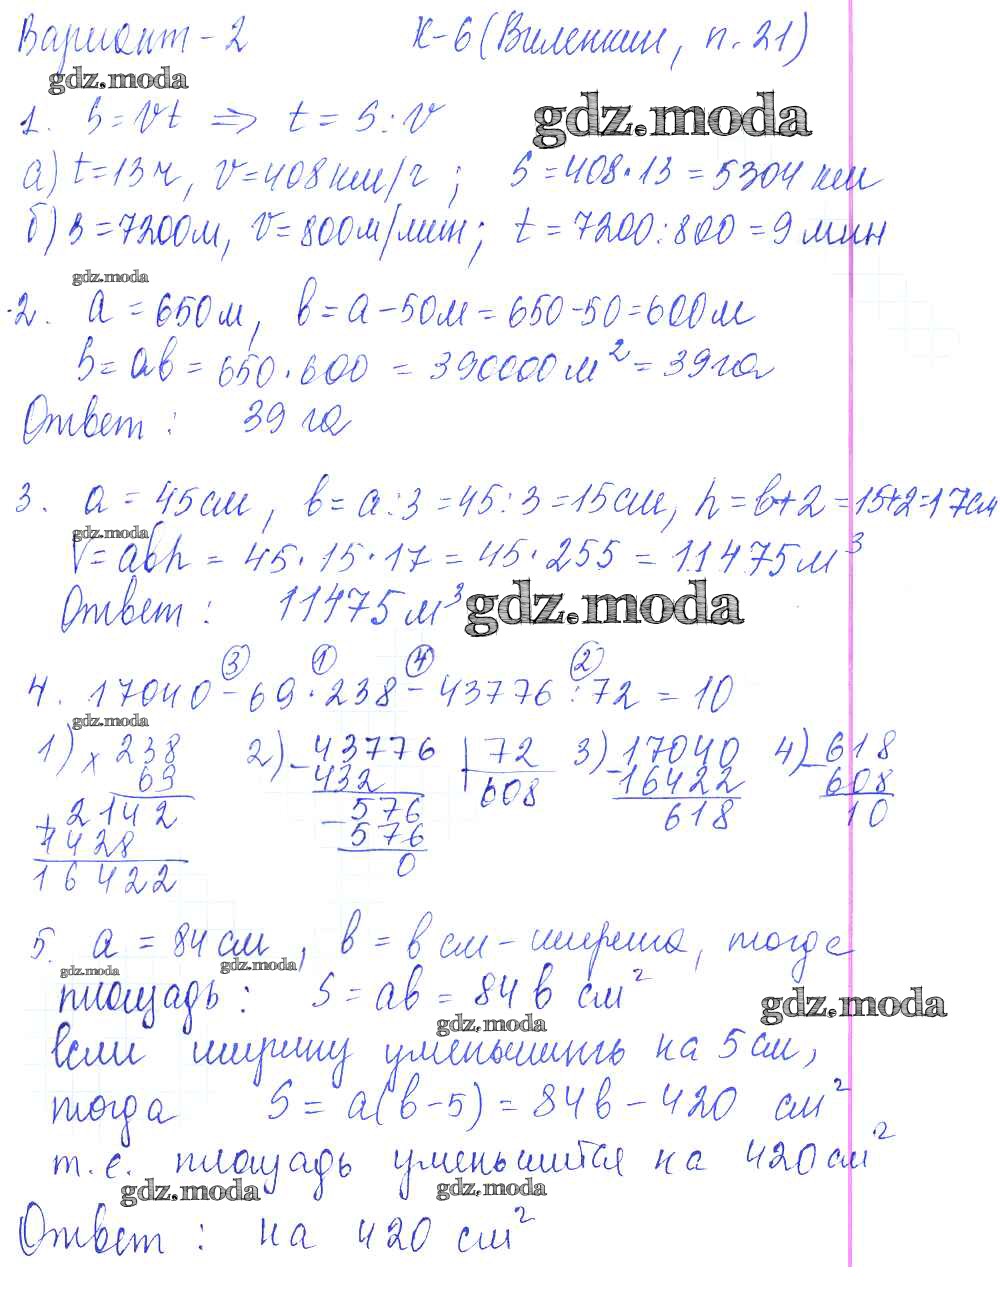 Вариант - 2 К-6 (Виленкин, п. 21)
gdz.moda
1. S = Vt ⇒ t = S : V
gdz.moda
а) t = 13 ч, V = 408 км/ч ; S = 408 · 13 = 5304 км
б) S = 7200 м, V = 800 м/мин ; t = 7200 : 800 = 9 мин
gdz.moda
2. a = 650 м, b = a - 50 м = 650 - 50 = 600 м
S = ab = 650 · 600 = 390000 м² = 39 га
Ответ : 39 га
3. a = 45 см, b = a : 3 = 45 : 3 = 15 см, h = b + 2 = 15 + 2 = 17 см
gdz.moda
V = abh = 45 · 15 · 17 = 45 · 255 = 11475 м³
Ответ : 11475 м³
gdz.moda
③ ① ④ ②
4. 17040 - 69 · 238 - 43776 : 72 = 10
gdz.moda
1) × 238 2) - 43776 | 72 3) - 17040 4) - 618
69 432 608 16422 608
+ 2142 - 576 618 10
1428 576
16422 0
5. a = 84 см, b = b см - ширина, тогда
gdz.moda gdz.moda
площадь : S = ab = 84 b см²
gdz.moda
gdz.moda
если ширину уменьшить на 5 см,
тогда S = a(b - 5) = 84b - 420 см²
т.е. площадь уменьшится на 420 см²
gdz.moda gdz.moda
Ответ : на 420 см²